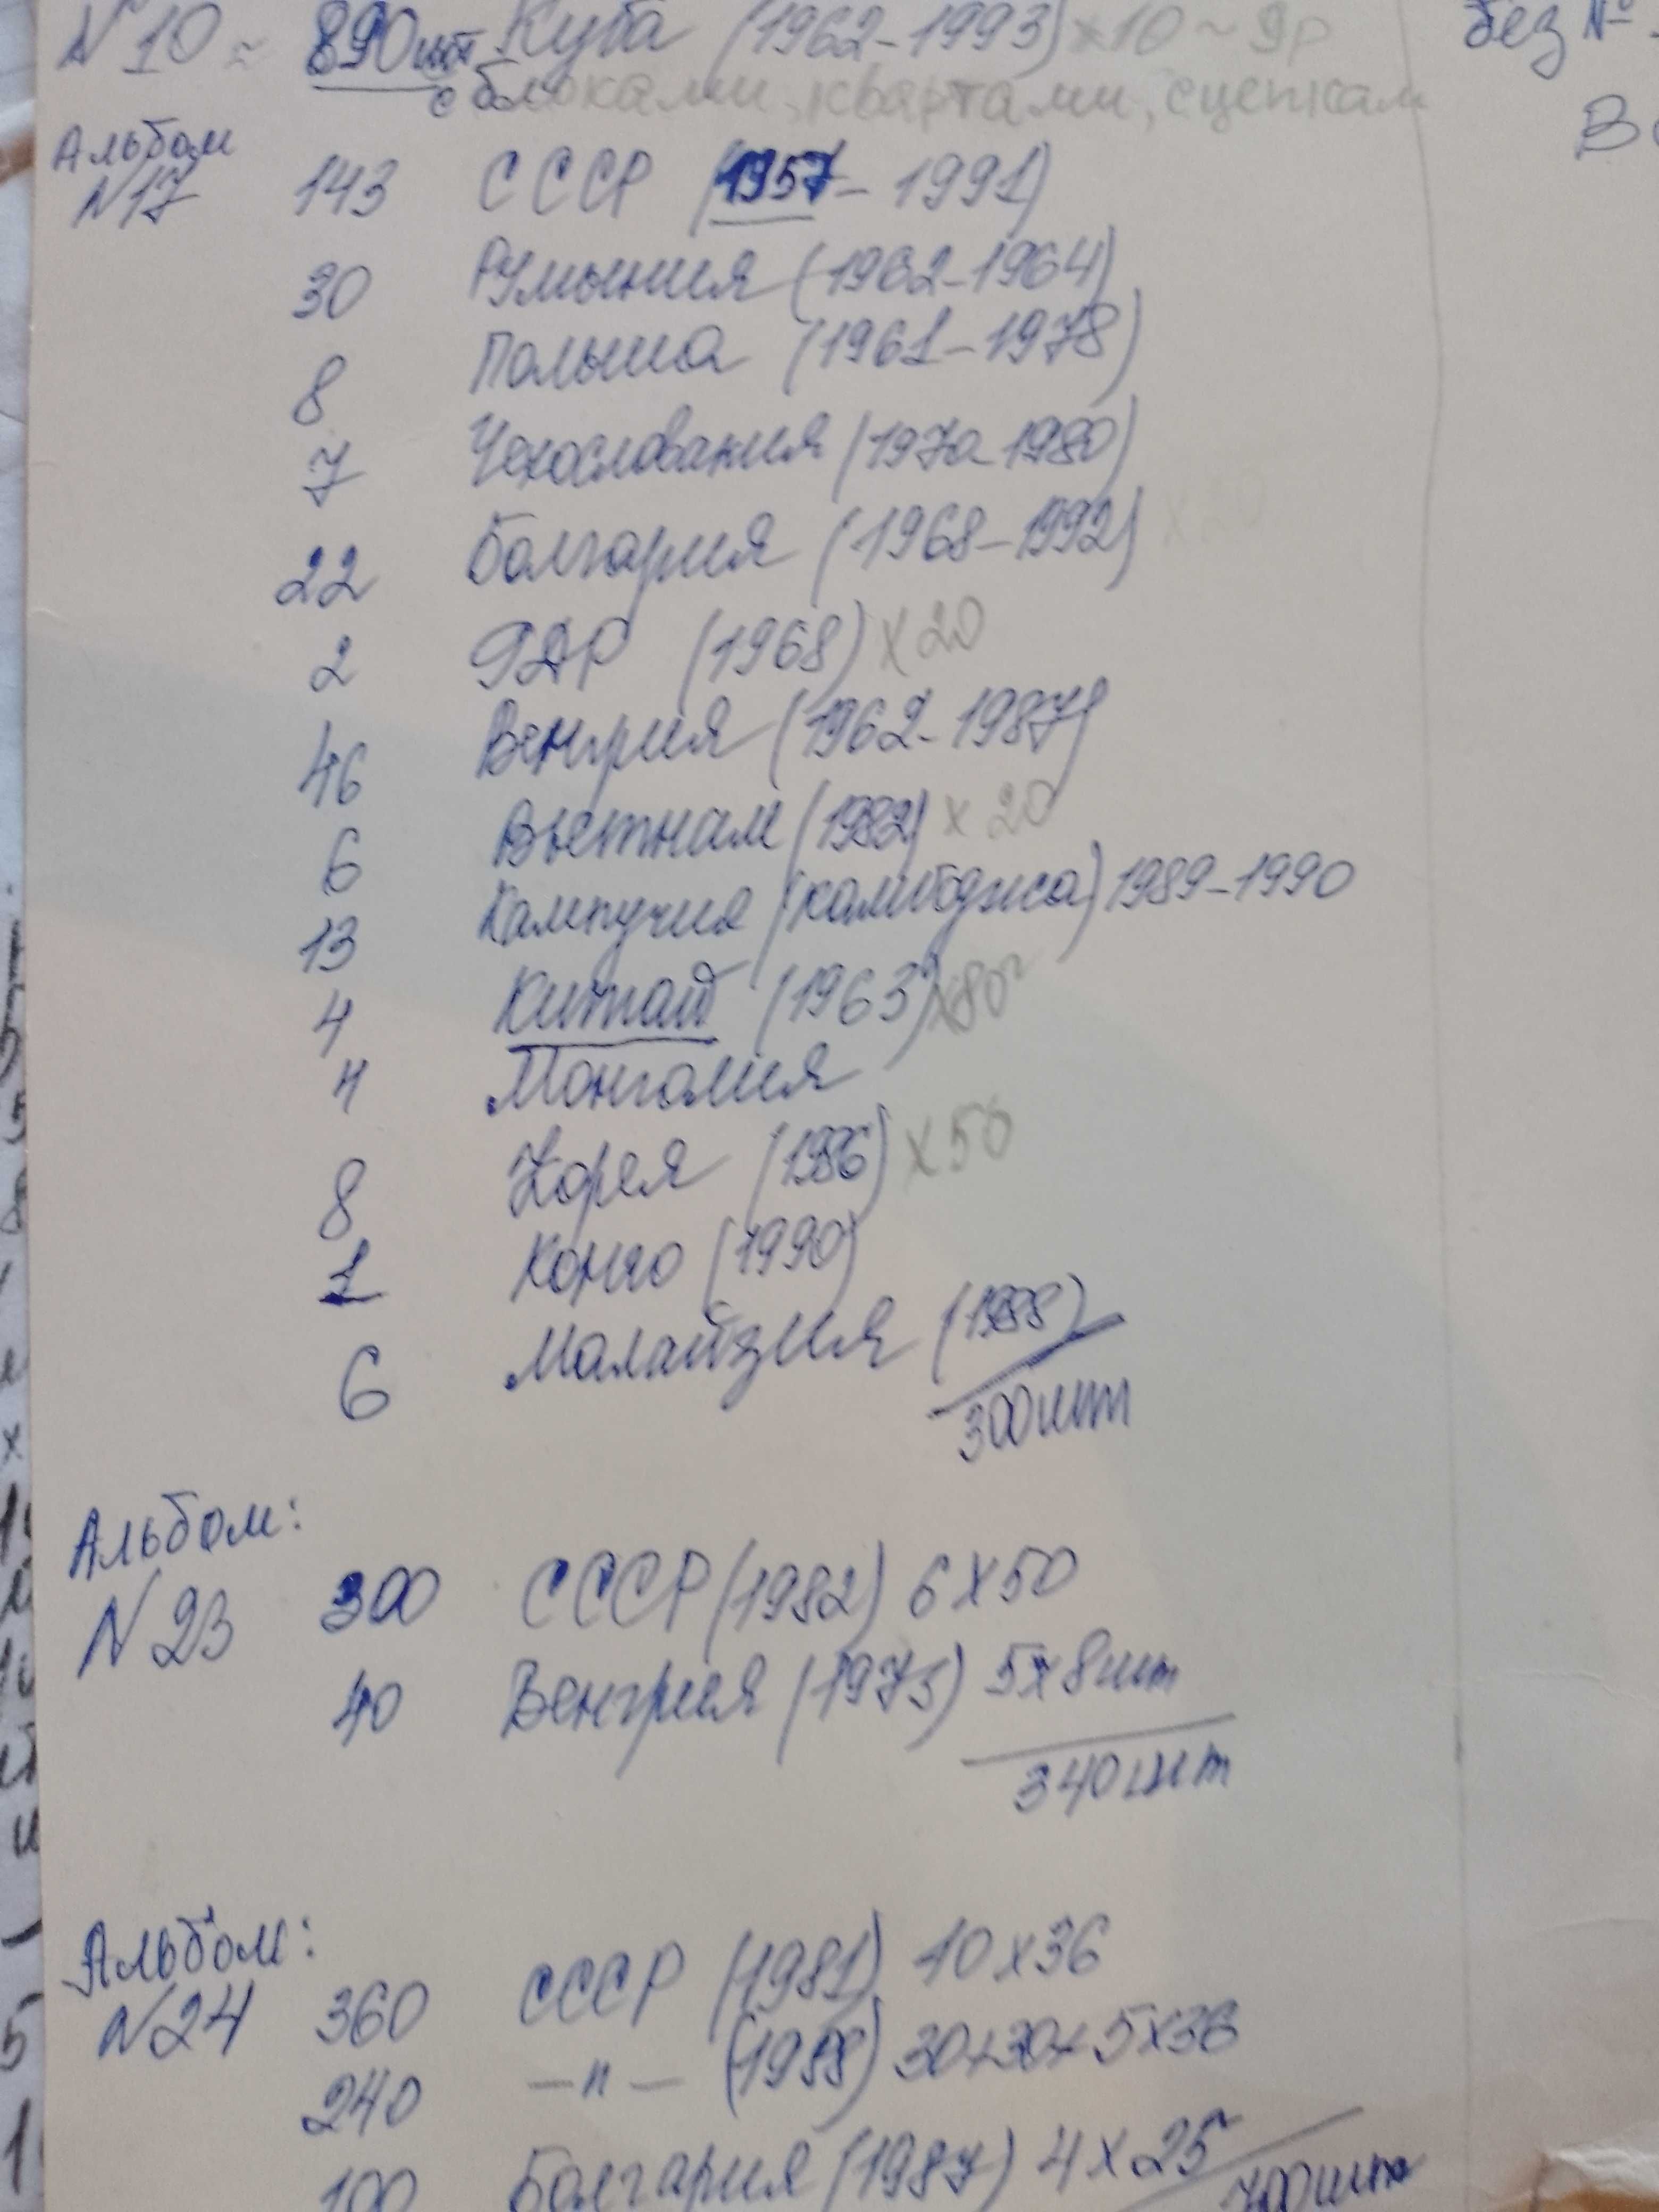 N 10 ≈ 890 шт Куба (1962-1993) x10 ~ 9р
с блоками, квартами, сцепкам
без №
Альбом
N17 143 СССР (1957-1991)
30 Румыния (1962-1964)
8 Польша (1961-1978)
7 Чехословакия (1970-1980)
22 Болгария (1968-1992) x20
2 ГДР (1968) x20
46 Венгрия (1962-1987)
6 Вьетнам (1982) x 20
13 Кампучия (Камбоджа) 1989-1990
4 Китай (1963) x80
4 Монголия
8 Корея (1986) x50
1 Конго (1990)
6 Малайзия (1988)
300 шт
Альбом:
N 23 300 СССР (1982) 6 x 50
40 Венгрия (1973) 5x8шт
340 шт
Альбом:
N24 360 СССР (1981) 10 x 36
240 —"— (1988) 30+30+5x36
100 Болгария (1987) 4 x 25
700 шт